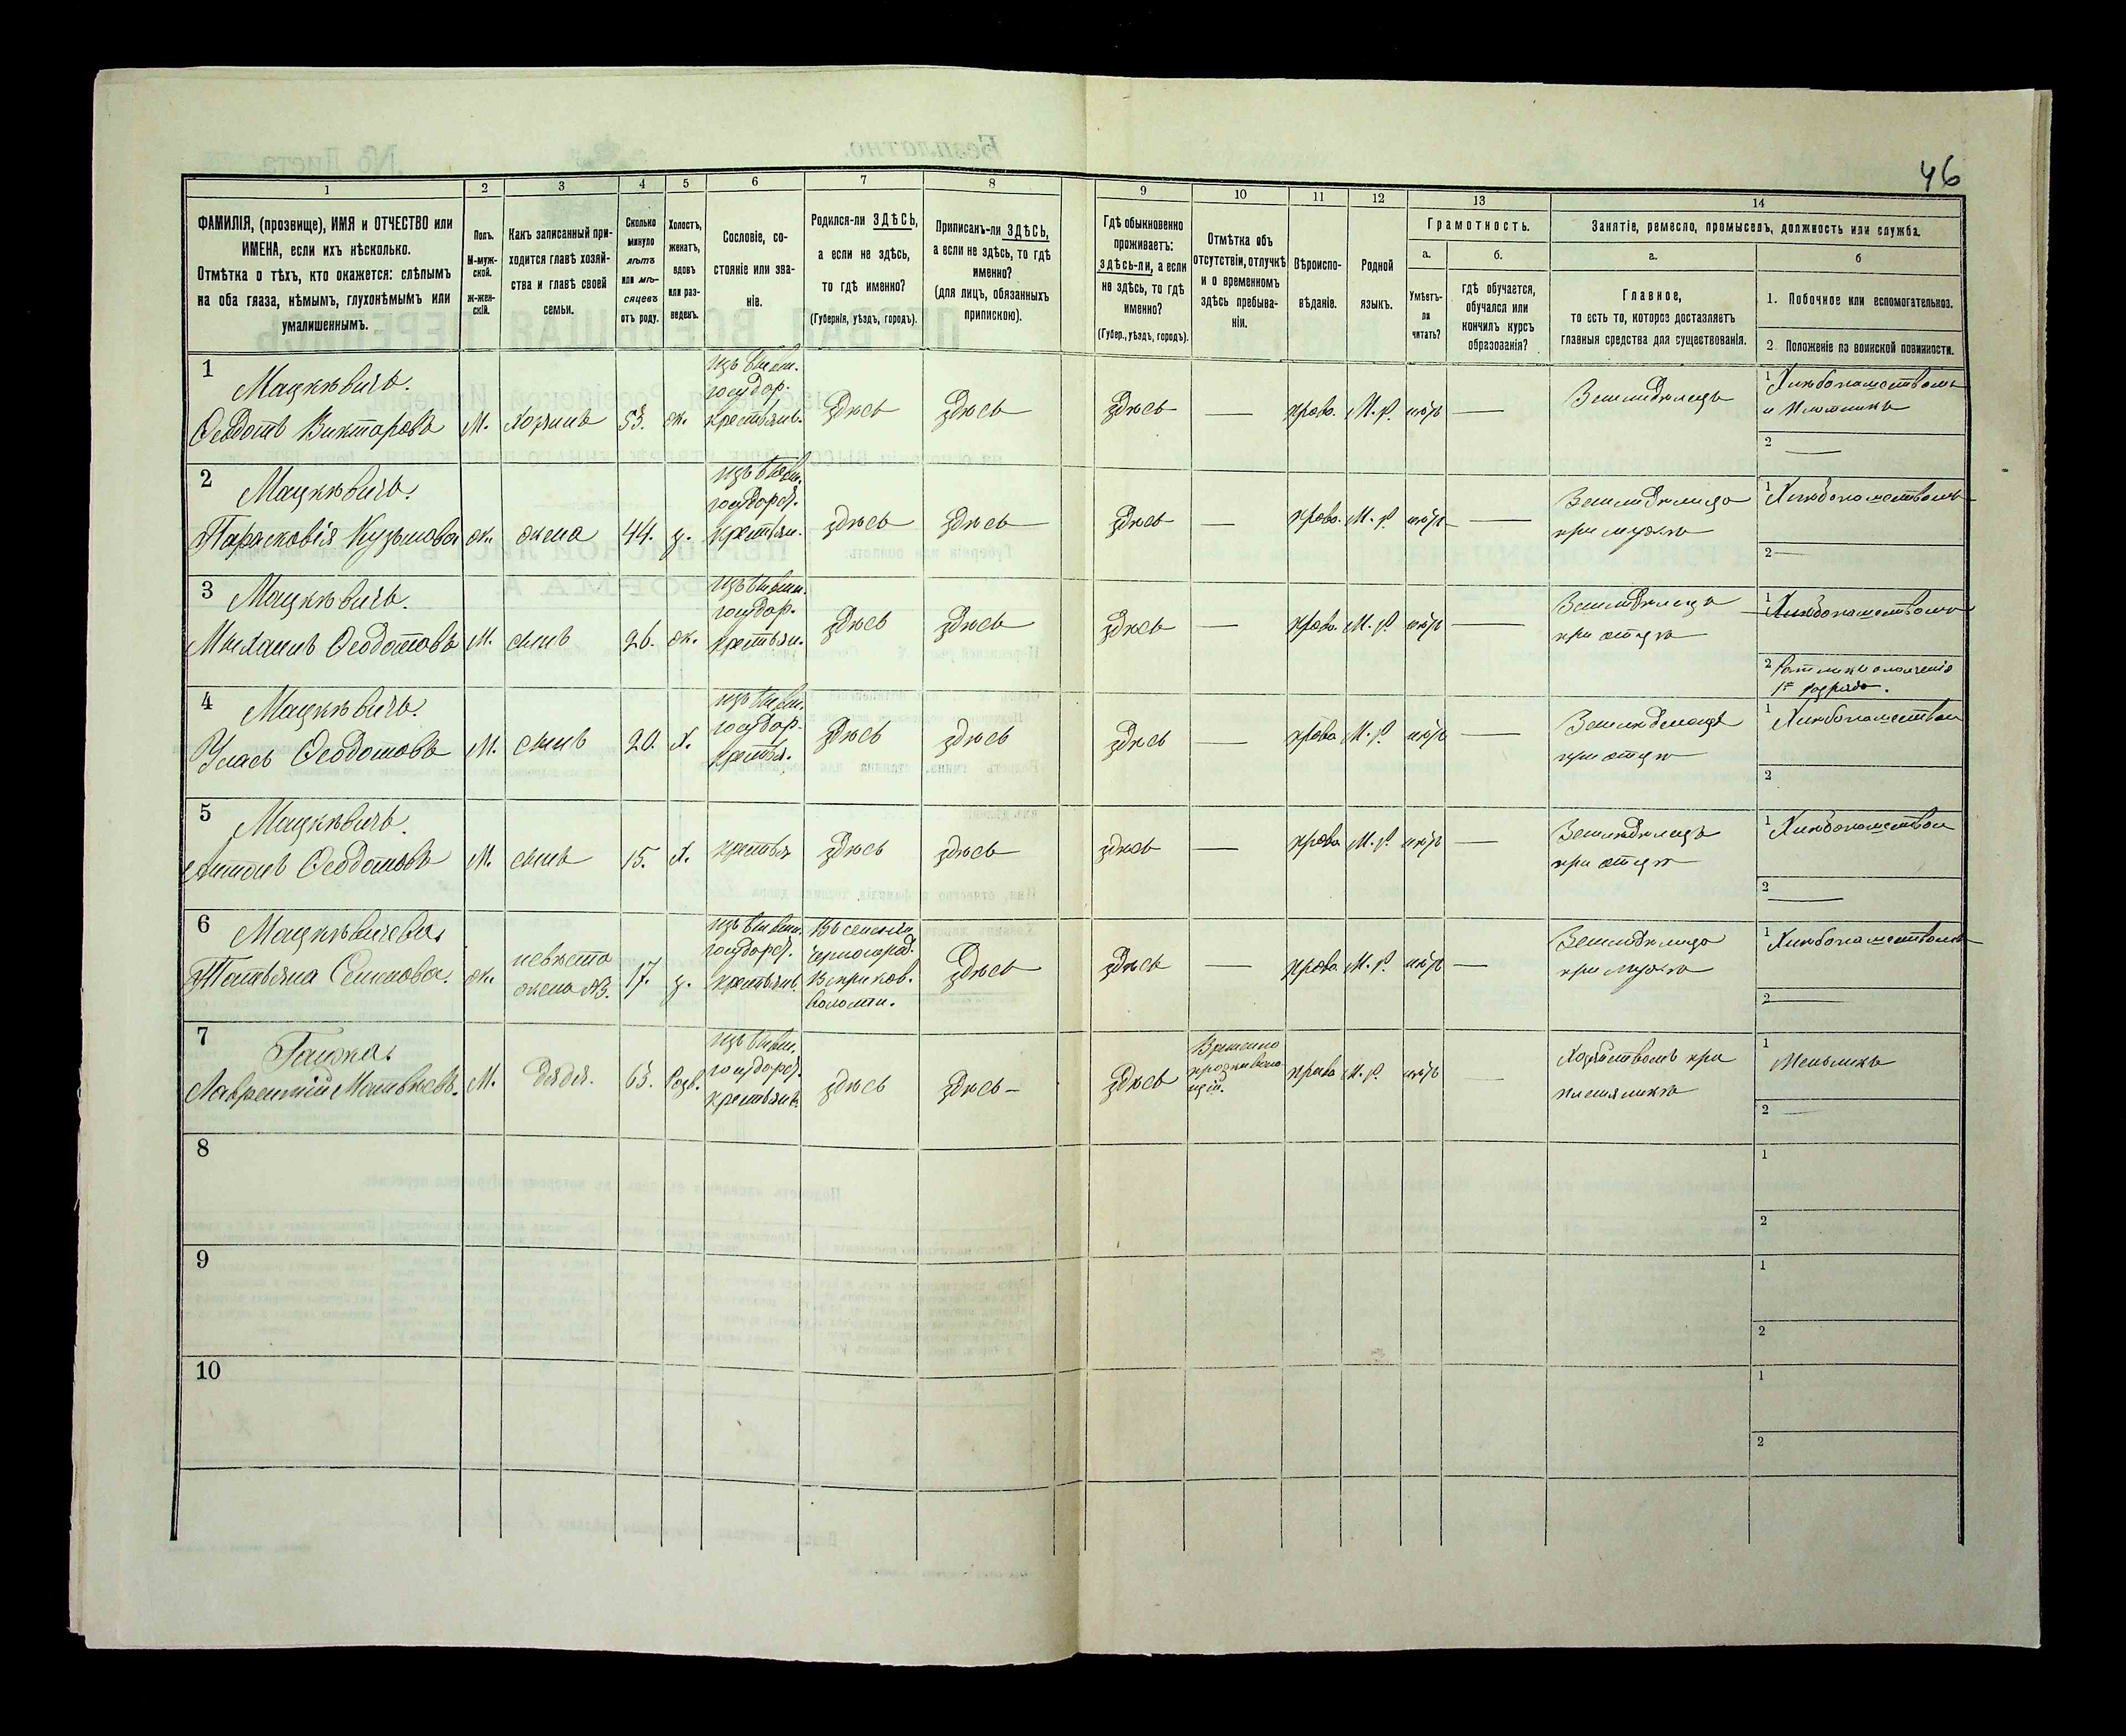 46
1 2 3 4 5 6 7 8 9 10 11 12 13 14
ФАМИЛІЯ, (прозвище), ИМЯ и ОТЧЕСТВО или
ИМЕНА, если ихъ нѣсколько.
Отмѣтка о тѣхъ, кто окажется: слѣпымъ
на оба глаза, нѣмымъ, глухонѣмымъ или
умалишеннымъ.
Полъ.
М-муж-
ской.
Ж-жен-
скій.
Какъ записанный при-
ходится главѣ хозяй-
ства и главѣ своей
семьи.
Сколько
минуло
лѣтъ
или мѣ-
сяцевъ
отъ роду.
Холостъ,
женатъ,
вдовъ
или раз-
веденъ.
Сословіе, со-
стояніе или зва-
ніе.
Родился-ли ЗДѢСЬ,
а если не здѣсь,
то гдѣ именно?
(Губернія, уѣздъ, городъ).
Приписанъ-ли ЗДѢСЬ,
а если не здѣсь, то гдѣ
именно?
(для лицъ, обязанныхъ
припискою).
Гдѣ обыкновенно
проживаетъ:
ЗДѢСЬ-ли, а если
не здѣсь, то гдѣ
именно?
(Губер., уѣздъ, городъ).
Отмѣтка объ
отсутствіи, отлучкѣ
и о временномъ
здѣсь пребыва-
ніи.
Вѣроиспо-
вѣданіе.
Родной
языкъ.
Грамотность.
а.
Умѣетъ-
ли
читать?
б.
гдѣ обучается,
обучался или
кончилъ курсъ
образованія?
Занятіе, ремесло, промыселъ, должность или служба.
а.
Главное,
то есть то, которое доставляетъ
главныя средства для существованія.
б
1. Побочное или вспомогательное.
2. Положеніе по воинской повинности.
1
Мацкѣвичъ.
Ѳеодотъ Викторовъ М. хозяинъ 53. ж.
изъ бывш.
государ.
крестьянъ.
здѣсь здѣсь здѣсь — право. М.р. нѣтъ — Земледѣлецъ
1 Хлѣбопашествомъ
и плотникъ
2 —
2
Мацкѣвичъ.
Парасковія Кузьмова ж. жена 44. з.
изъ бывш.
государст.
крестьян.
здѣсь здѣсь здѣсь — право. М.р. нѣтъ —
Земледѣлица
при мужѣ
1 Хлѣбопашествомъ
2 —
3
Мацкѣвичъ.
Михаилъ Ѳеодотовъ М. сынъ 26. ж.
изъ бывш.
государ.
крестьян.
здѣсь здѣсь здѣсь — право. М.р. нѣтъ —
Земледѣлецъ
при отцѣ
1 Хлѣбопашествомъ
2 Ратникъ ополченія
1го разряда.
4
Мацкѣвичъ.
Уласъ Ѳеодотовъ М. сынъ 20. х.
изъ бывш.
государ.
крестья.
здѣсь здѣсь здѣсь — право М.р. нѣтъ —
Земледѣлецъ
при отцѣ
1 Хлѣбопашествомъ
2
5
Мацкѣвичъ.
Антонъ Ѳеодотовъ М. сынъ 15. х. крестья здѣсь здѣсь здѣсь — право М.р. нѣтъ —
Земледѣлецъ
при отцѣ
1 Хлѣбопашествомъ
2 —
6
Мацкѣвичева,
Татьяна ж.
невѣста
жена №3.
17. з.
изъ бывш.
государст.
крестьянъ
Въ селеніи
волости.
здѣсь здѣсь — право М.р. нѣтъ —
Земледѣлица
при мужѣ
1 Хлѣбопашествомъ
2 —
7
Лаврентій Матвѣевъ. М. дядя. 63. Разв.
изъ бывш.
государст.
крестьянъ
здѣсь здѣсь — здѣсь
Временно
проживаю
щій.
право М.р. нѣтъ —
Хозяйствомъ при
племянникѣ
1 Мельникъ
2 —
8
1
2
9
1
2
10
1
2